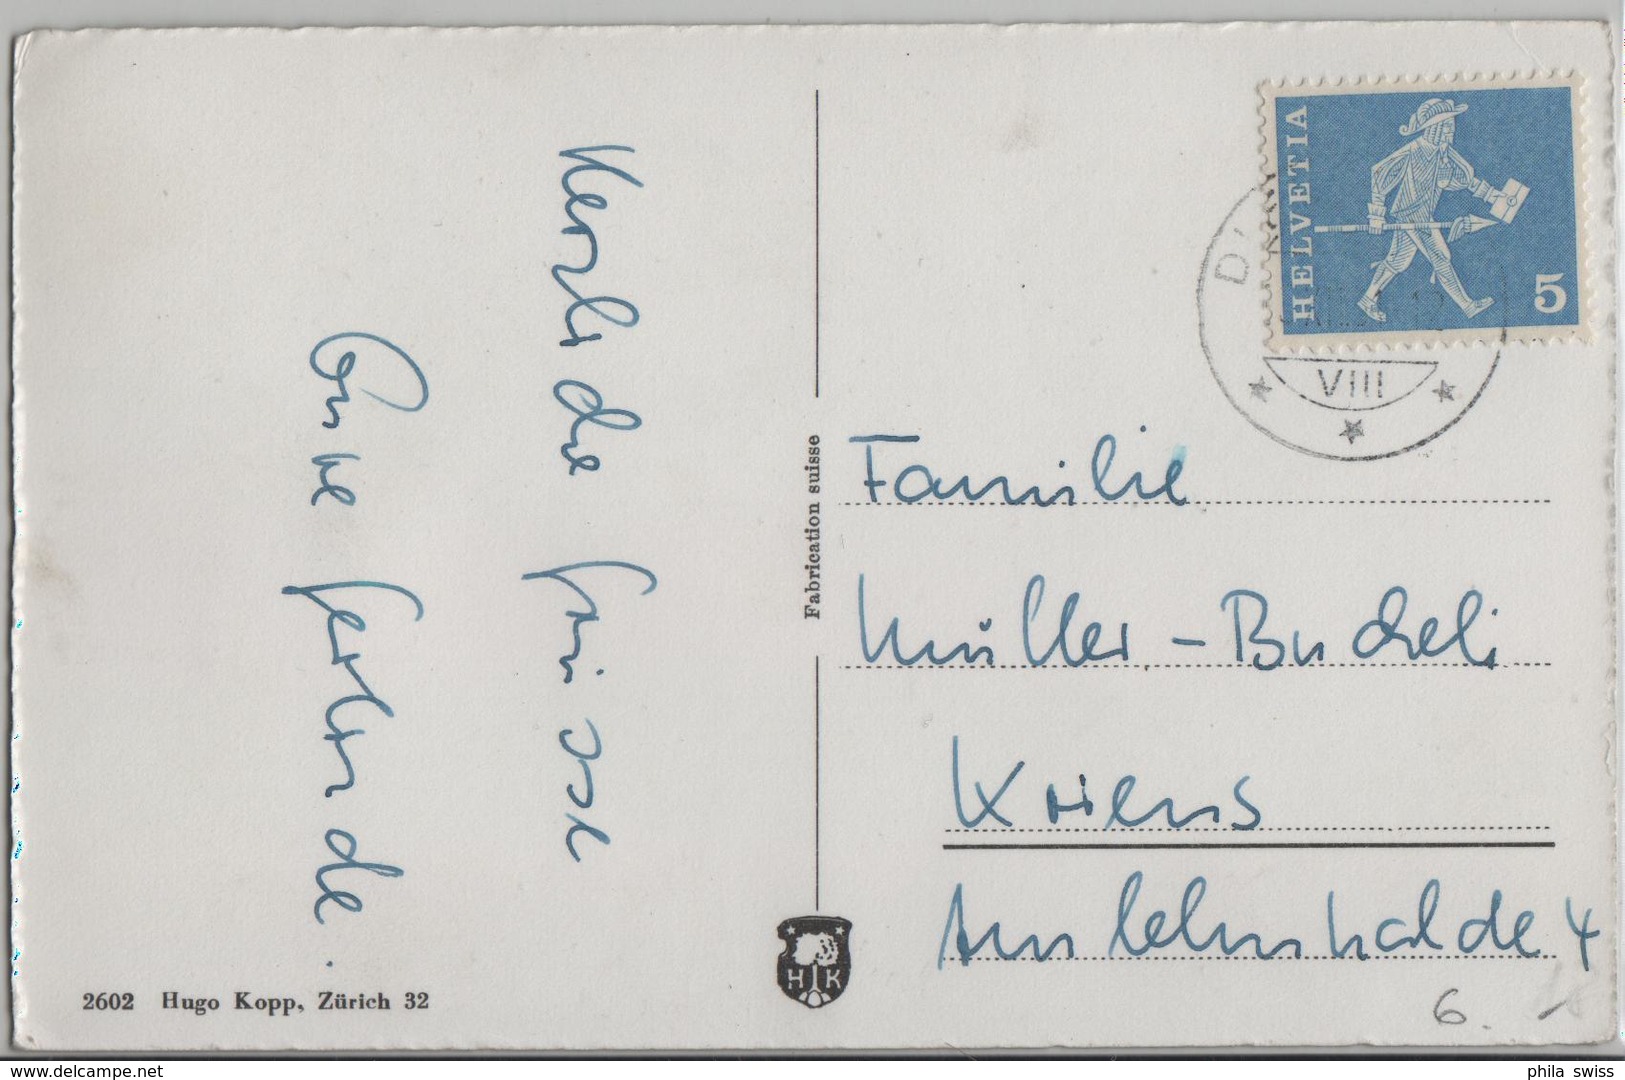 Herzliche Grüsse
Onkel Ferdinand.
Fabrication suisse
2602 Hugo Kopp, Zürich 32
H K
HELVETIA
5
VIII
Familie
Müller-Bucheli
Kriens
Amlehnhalde 4
6.
www.delcampe.net
phila swiss